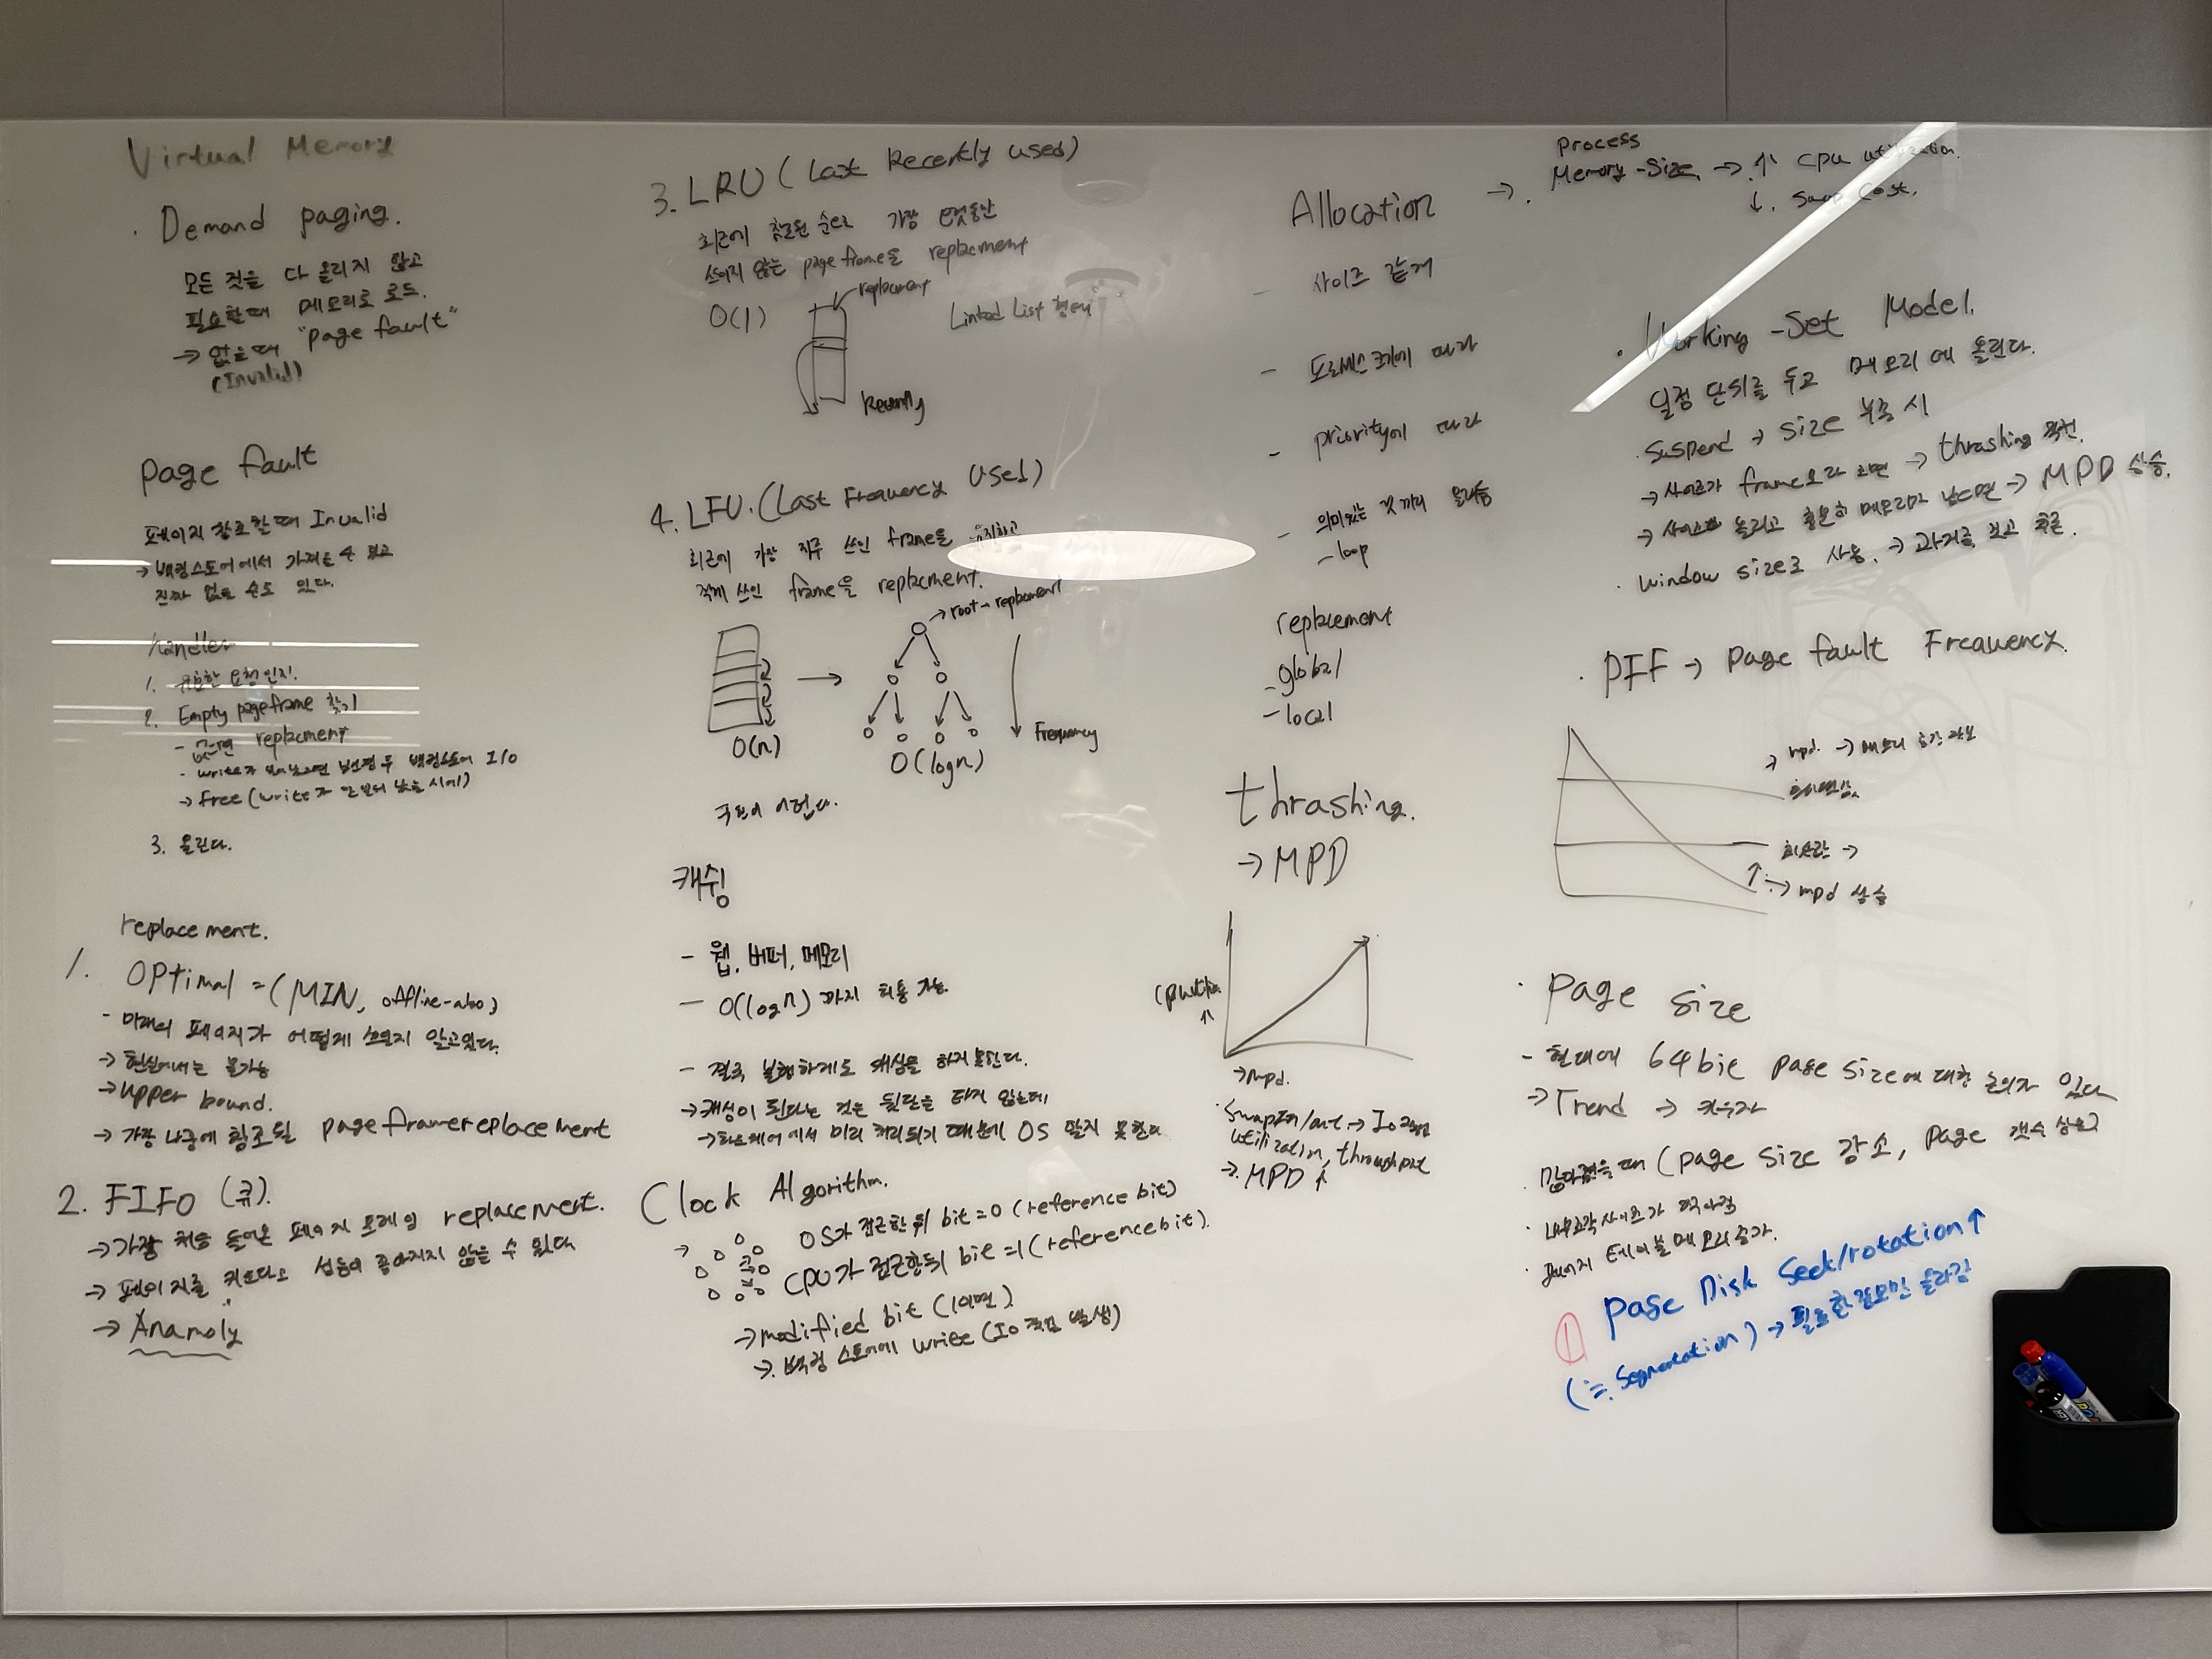 Virtual Memory
· Demand paging.
모든 것을 다 올리지 않고
필요할때 메모리로 로드.
→ 없을때 "page fault"
(Invalid)
page fault
페이지 참조할때 Invalid
→ 백킹스토어에서 가져올수 있고
진짜 없을 수도 있다.
handler
1. 유효한 요청인지.
2. Empty pageframe 찾기
- 없으면 replacment
→ free (write가
3. 올린다.
replacement.
1. Optimal = (MIN, offline-
- 미래의 페이지가 어떻게 쓰일지 알고있다.
→ 현실에서는 불가능
→ upper bound.
→ 가장 나중에 참조될 pageframereplacement
2. FIFO (큐).
→ 가장 처음 들어온 페이지 프레임 replacement.
→ 페이지를 키운다고 성능이 좋아지지 않을 수 있다
→ Anamoly
3. LRU (Last Recently used)
최근에 참조된 순서로 가장
쓰이지 않는 page frame을 replacment
O(1)
replacment
Linked List 형태
Recently
4. LFU. (Last Frequency Used)
최근에 가장 자주 쓰인 frame을 유지하고
적게 쓰인 frame을 replacment.
→ root → replacment
O(n)
O(logn)
Frequency
구현이 어렵다.
캐싱
- 웹, 버퍼, 메모리
- O(logn) 까지 허용 가능.
- 결국 불행하게도 캐싱을 하지못한다.
→ 캐싱이 된다는 것은 뒷단을 타지 않는데,
→ 하드웨어에서 미리 처리되기 때문에 OS 알지 못한다
Clock Algorithm.
OS가 접근한 뒤 bit=0 (reference bit)
CPU가 접근한뒤 bit=1 (reference bit).
→ modified bit (1이면)
→. 백킹 스토어에 write (IO 작업 발생)
Allocation
- 사이즈 같게
- 프로세스크기에 따라
- priority에 따라
- 의미있는 것 끼리 올려둠
- loop
replacement
- global
- local
thrashing.
→ MPD
↑
→ mpd.
utilization, throughput
→. MPD ↑
→. Process
Memory-Size. → ↑ cpu utilization.
↓. Swap Cost.
· Working-Set Model.
일정 단위를 두고 메모리에 올린다.
· Suspend → size 부족 시
→ 사이즈가 frame보다 크면 → thrashing
→ 올리고 충분히 메모리가 남으면 → MPD 상승.
· window size로 사용. → 과거를 보고
· PFF → Page fault Frequency.
→ mpd. → 메모리 공간 확보
→ mpd 상승
· page size
- 현대에 64bit page size에 대한 논의가 있다
→ Trend → 키우자
· 작아졌을 때 (page size 감소, page 갯수 상승)
· 내부조각사이즈가 작아짐
· 페이지 테이블 메모리 증가.
① page Disk Seek/rotation ↑
(≒ Segmentation) → 필요한정보만 올라감